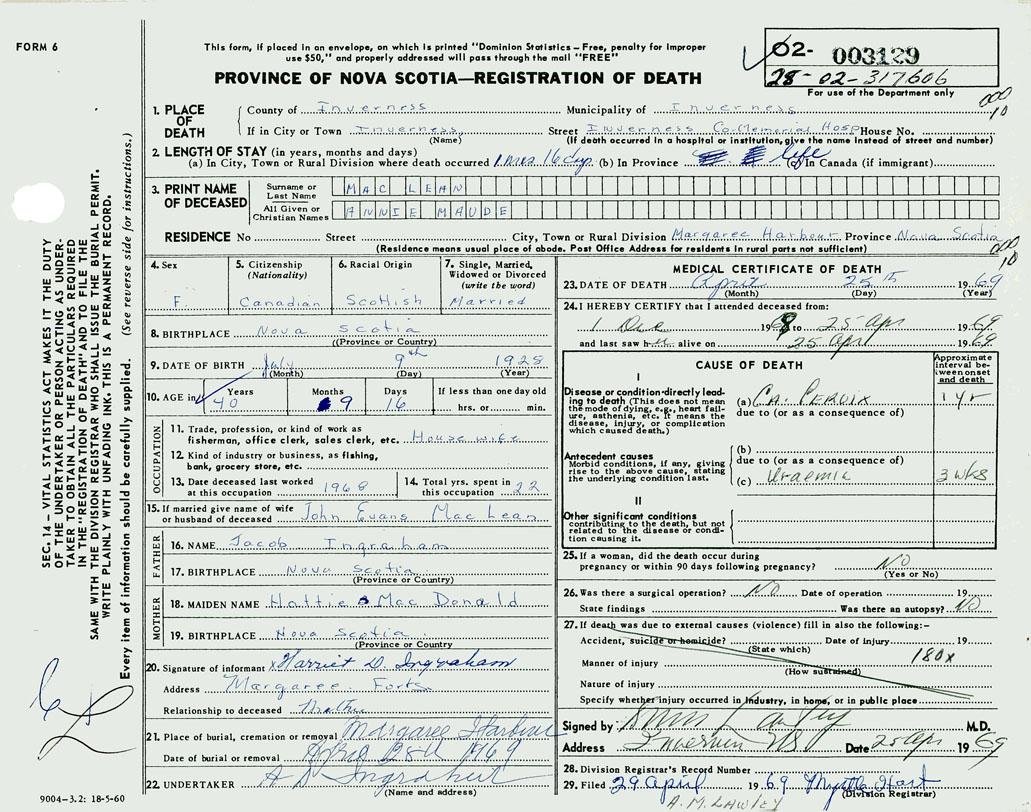 FORM 6
This form, if placed in an envelope, on which is printed "Dominion Statistics – Free, penalty for Improper
use $50," and properly addressed will pass through the mail "FREE"
PROVINCE OF NOVA SCOTIA—REGISTRATION OF DEATH
02- 003129
28-02-317606
For use of the Department only
1. PLACE OF DEATH
County of Inverness Municipality of Inverness
If in City or Town Inverness, Street Inverness Co. Memorial Hosp House No.
(Name) (If death occurred in a hospital or institution, give the name instead of street and number)
2. LENGTH OF STAY (in years, months and days)
(a) In City, Town or Rural Division where death occurred 1 mos. 16 dys. (b) In Province life (c) In Canada (if immigrant)
3. PRINT NAME OF DECEASED
Surname or Last Name MAC LEAN
All Given or Christian Names ANNIE MAUDE
RESIDENCE No Street City, Town or Rural Division Margaree Harbour Province Nova Scotia
(Residence means usual place of abode. Post Office Address for residents in rural parts not sufficient)
4. Sex F.
5. Citizenship (Nationality) Canadian
6. Racial Origin Scottish
7. Single, Married, Widowed or Divorced (write the word) Married
8. BIRTHPLACE Nova Scotia
(Province or Country)
9. DATE OF BIRTH July 9th 1928
(Month) (Day) (Year)
10. AGE in Years 40 Months 9 Days 16 If less than one day old hrs. or min.
OCCUPATION
11. Trade, profession, or kind of work as
fisherman, office clerk, sales clerk, etc. Housewife
12. Kind of industry or business, as fishing,
bank, grocery store, etc.
13. Date deceased last worked at this occupation 1968
14. Total yrs. spent in this occupation 22
15. If married give name of wife
or husband of deceased John Evans MacLean
FATHER
16. NAME Jacob Ingraham
17. BIRTHPLACE Nova Scotia
(Province or Country)
MOTHER
18. MAIDEN NAME Hattie MacDonald
19. BIRTHPLACE Nova Scotia
(Province or Country
20. Signature of informant x Harriet D. Ingraham
Address Margaree Forks
Relationship to deceased Mother
21. Place of burial, cremation or removal Margaree Harbour
Date of burial or removal April 28th 1969
22. UNDERTAKER A D Ingraham
(Name and address)
9004-3.2: 18-5-60
MEDICAL CERTIFICATE OF DEATH
23. DATE OF DEATH April 25th 1969
(Month) (Day) (Year)
24. I HEREBY CERTIFY that I attended deceased from:
1 Dec 1968 to 25 Apr 1969
and last saw h er alive on 25 Apr 1969
CAUSE OF DEATH
Approximate interval between onset and death
I
Disease or condition directly leading to death (This does not mean the mode of dying, e.g., heart failure, asthenia, etc. It means the disease, injury, or complication which caused death.)
(a) Ca. Cervix 1 yr
due to (or as a consequence of)
Antecedent causes
Morbid conditions, if any, giving rise to the above cause, stating the underlying condition last.
(b)
due to (or as a consequence of)
(c) Uraemia 3 wks
II
Other significant conditions
contributing to the death, but not related to the disease or condition causing it.
25. If a woman, did the death occur during
pregnancy or within 90 days following pregnancy? NO
(Yes or No)
26. Was there a surgical operation? NO Date of operation 19
State findings Was there an autopsy? NO
27. If death was due to external causes (violence) fill in also the following:-
Accident, suicide or homicide? Date of injury 19
(State which)
180x
Manner of injury
(How sustained)
Nature of injury
Specify whether injury occurred in industry, in home, or in public place
Signed by M.D.
Address Inverness NS Date 25 Apr 1969
28. Division Registrar's Record Number
29. Filed 29 April 1969 Myrtle Hart
(Division Registrar)
A. M. LAWLEY
SEC. 14 – VITAL STATISTICS ACT MAKES IT THE DUTY
OF THE UNDERTAKER OR PERSON ACTING AS UNDER-
TAKER TO OBTAIN ALL THE PARTICULARS REQUIRED
IN THE "REGISTRATION OF DEATH" AND TO FILE THE
SAME WITH THE DIVISION REGISTRAR WHO SHALL ISSUE THE BURIAL PERMIT.
WRITE PLAINLY WITH UNFADING INK. THIS IS A PERMANENT RECORD.
Every item of information should be carefully supplied. (See reverse side for instructions.)